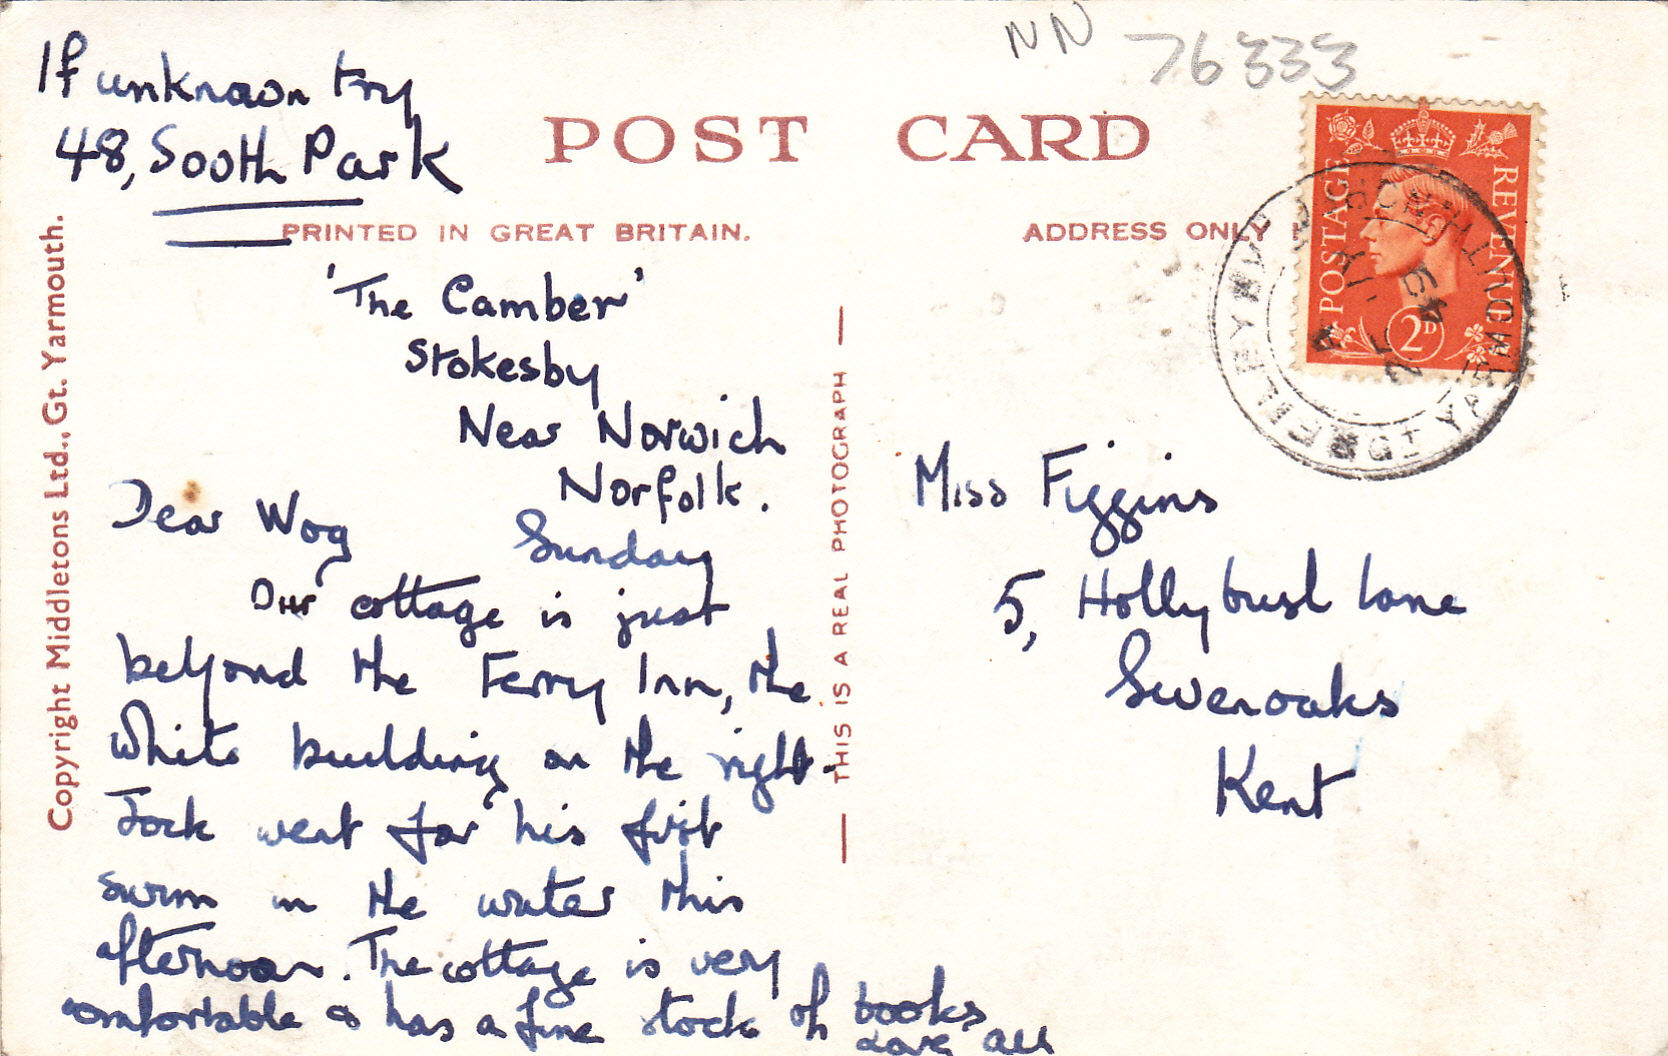 NN 76333
If unknown try
48, South Park
POST CARD
PRINTED IN GREAT BRITAIN.
ADDRESS ONLY
Copyright Middletons Ltd., Gt. Yarmouth.
THIS IS A REAL PHOTOGRAPH
POSTAGE REVENUE
2D
GT YARMOUTH
'The Camber'
Stokesby
Near Norwich
Norfolk.
Sunday
Dear Wog
Our cottage is just
beyond the Ferry Inn, the
white building on the right.
Jock went for his first
swim in the water this
afternoon. The cottage is very
comfortable & has a fine stock of books
Love all
Miss Figgins
5, Hollybush Lane
Sevenoaks
Kent